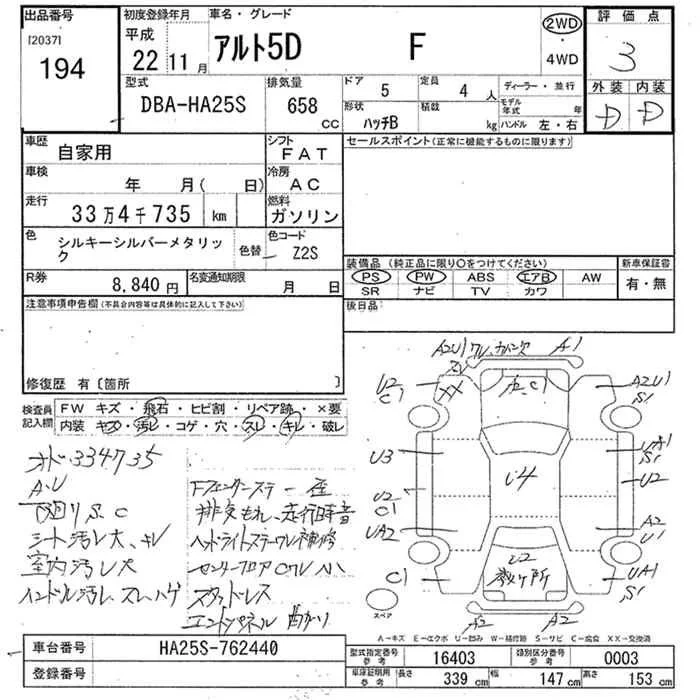 出品番号
[2037]
194
初度登録年月
平成
22 11 月
車名・グレード
アルト5D F
2WD
4WD
評価点
3
外装 内装
D D
型式
DBA-HA25S
排気量
658
CC
ドア 5
定員 4 人
形状
ハッチB
積載
kg
ディーラー・並行
モデル年式 年
ハンドル 左・右
車歴
自家用
シフト
FAT
車検
年 月( 日)
冷房
AC
走行
33万4千735 km
燃料
ガソリン
色
シルキーシルバーメタリック
色替
色コード
Z2S
R券
8,840 円
名変通知期限
月 日
セールスポイント(正常に機能するものに限ります)
装備品 (純正品に限り○をつけてください)
PS PW ABS エアB AW
SR ナビ TV カワ
新車保証書
有・無
後日品
注意事項申告欄(不具合内容等は具体的に記入して下さい)
修復歴 有〔箇所 〕
検査員記入欄
FW キズ・飛石・ヒビ割・リペア跡・×要
内装 キズ・汚レ・コゲ・穴・スレ・キレ・破レ
オド334735
A.U
廻りS.C
シート汚レ大、キレ
室内汚レ大
インドル汚レ、スレ、ハゲ
Fフェンダーステー歪
排気もれ、走行時音
ヘッドライトステーワレ補修
センターフロアCワレ小
スタットレス
エンドパネル曲がり
A2U1 ワレ、カケ、穴 A1
U2
C1
XX
A2U1
S1
U3
UA1
S1
i4
U2
U2
C1
UA2
A2
U1
C1
i2
数ヶ所
UA1
S1
A2 A2
スペア
A-キズ E-エクボ U-凹み W-補修跡 S-サビ C-腐食 XX-交換済
車台番号
HA25S-762440
登録番号
型式指定番号 参考
16403
類別区分番号 参考
0003
車庫証明用 参考
長さ 339 cm
幅 147 cm
高さ 153 cm